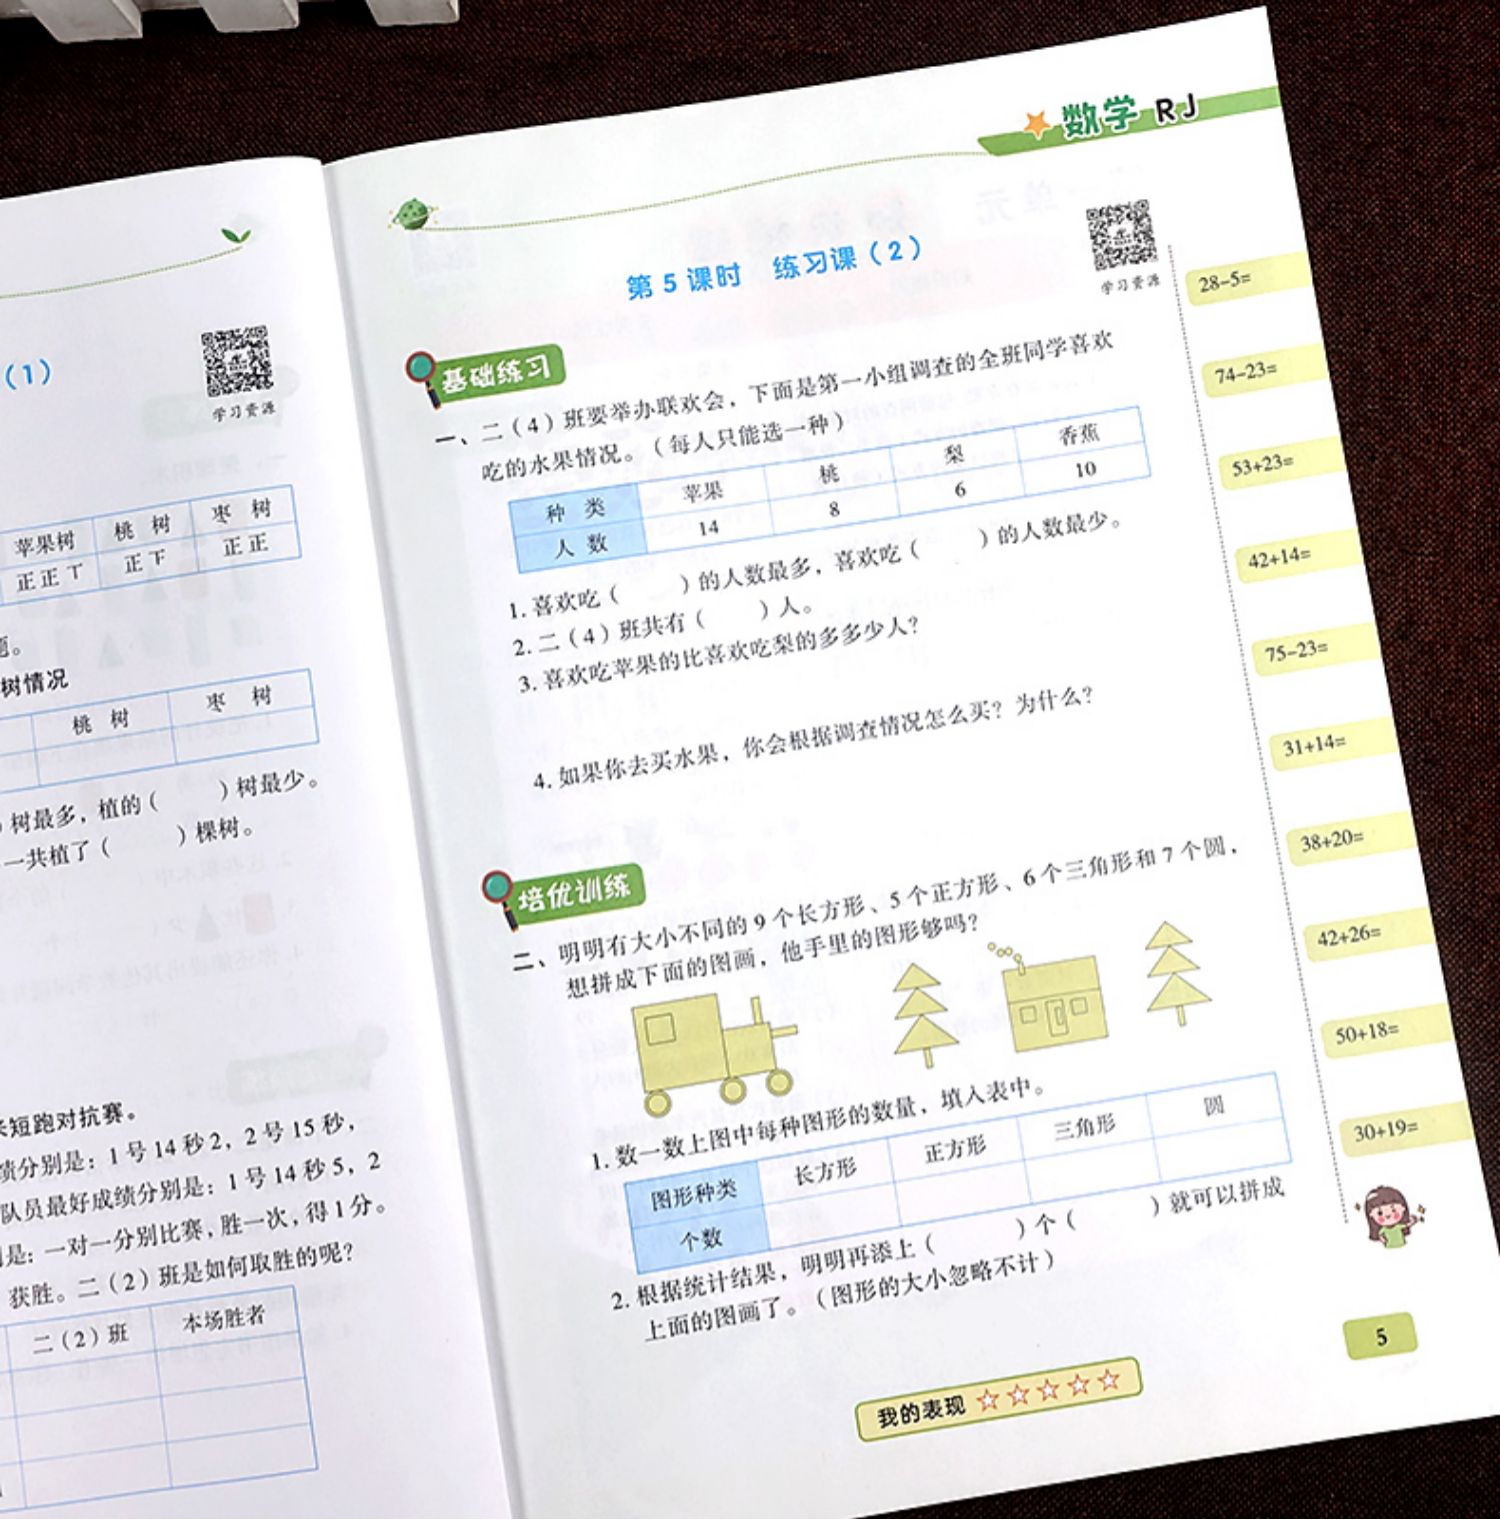 (1)
学习资源
苹果树 桃 树 枣 树
正正丅 正𠄟 正正
题。
树情况
桃 树 枣 树
)树最多，植的( )树最少。
一共植了( )棵树。
米短跑对抗赛。
绩分别是：1号14秒2，2号15秒，
队员最好成绩分别是：1号14秒5，2
是：一对一分别比赛，胜一次，得1分。
获胜。二(2)班是如何取胜的呢？
二(2)班 本场胜者
数学 RJ
第5课时 练习课(2)
学习资源
基础练习
一、二(4)班要举办联欢会，下面是第一小组调查的全班同学喜欢
吃的水果情况。(每人只能选一种)
种 类 苹果 桃 梨 香蕉
人 数 14 8 6 10
1. 喜欢吃( )的人数最多，喜欢吃( )的人数最少。
2. 二(4)班共有( )人。
3. 喜欢吃苹果的比喜欢吃梨的多多少人？
4. 如果你去买水果，你会根据调查情况怎么买？为什么？
培优训练
二、明明有大小不同的9个长方形、5个正方形、6个三角形和7个圆，
想拼成下面的图画，他手里的图形够吗？
1. 数一数上图中每种图形的数量，填入表中。
图形种类 长方形 正方形 三角形 圆
个数
2. 根据统计结果，明明再添上( )个( )就可以拼成
上面的图画了。(图形的大小忽略不计)
我的表现
28-5=
74-23=
53+23=
42+14=
75-23=
31+14=
38+20=
42+26=
50+18=
30+19=
5